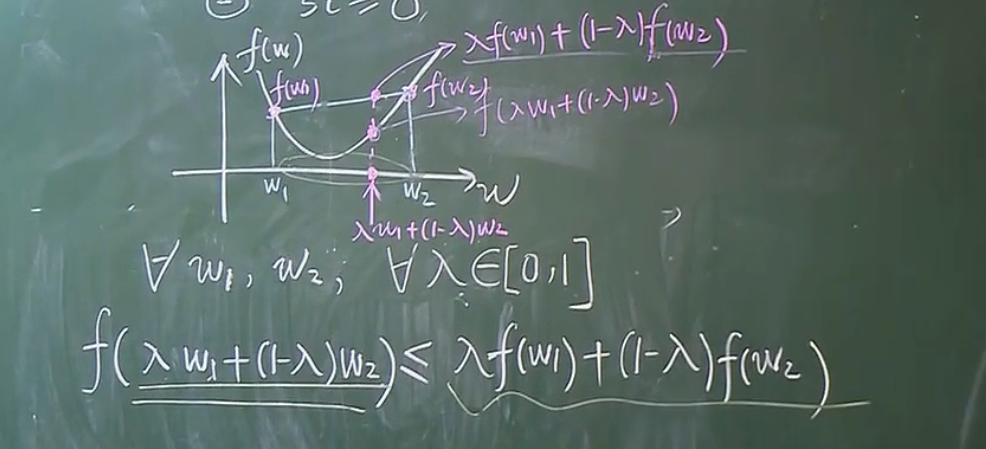 f(w)
λf(w₁)+(1-λ)f(w₂)
f(w₁)
f(w₂)
f(λw₁+(1-λ)w₂)
w₁
w₂
w
λw₁+(1-λ)w₂
∀ w₁, w₂, ∀λ∈[0,1]
f(λw₁+(1-λ)w₂)≤λf(w₁)+(1-λ)f(w₂)